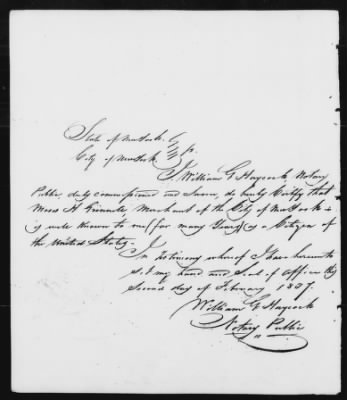 State of New York }
City of New York } ss.
I, William G Haycock Notary
Public, duly commissioned and sworn, do hereby Certify that
Moses H Grinnell Merchant of the City of New York is
is well known to me (for many Years) is a Citizen of
the United States.
In testimony whereof I have hereunto
set my hand and Seal of Office this
Second day of February 1837.
William G Haycock
Notary Public